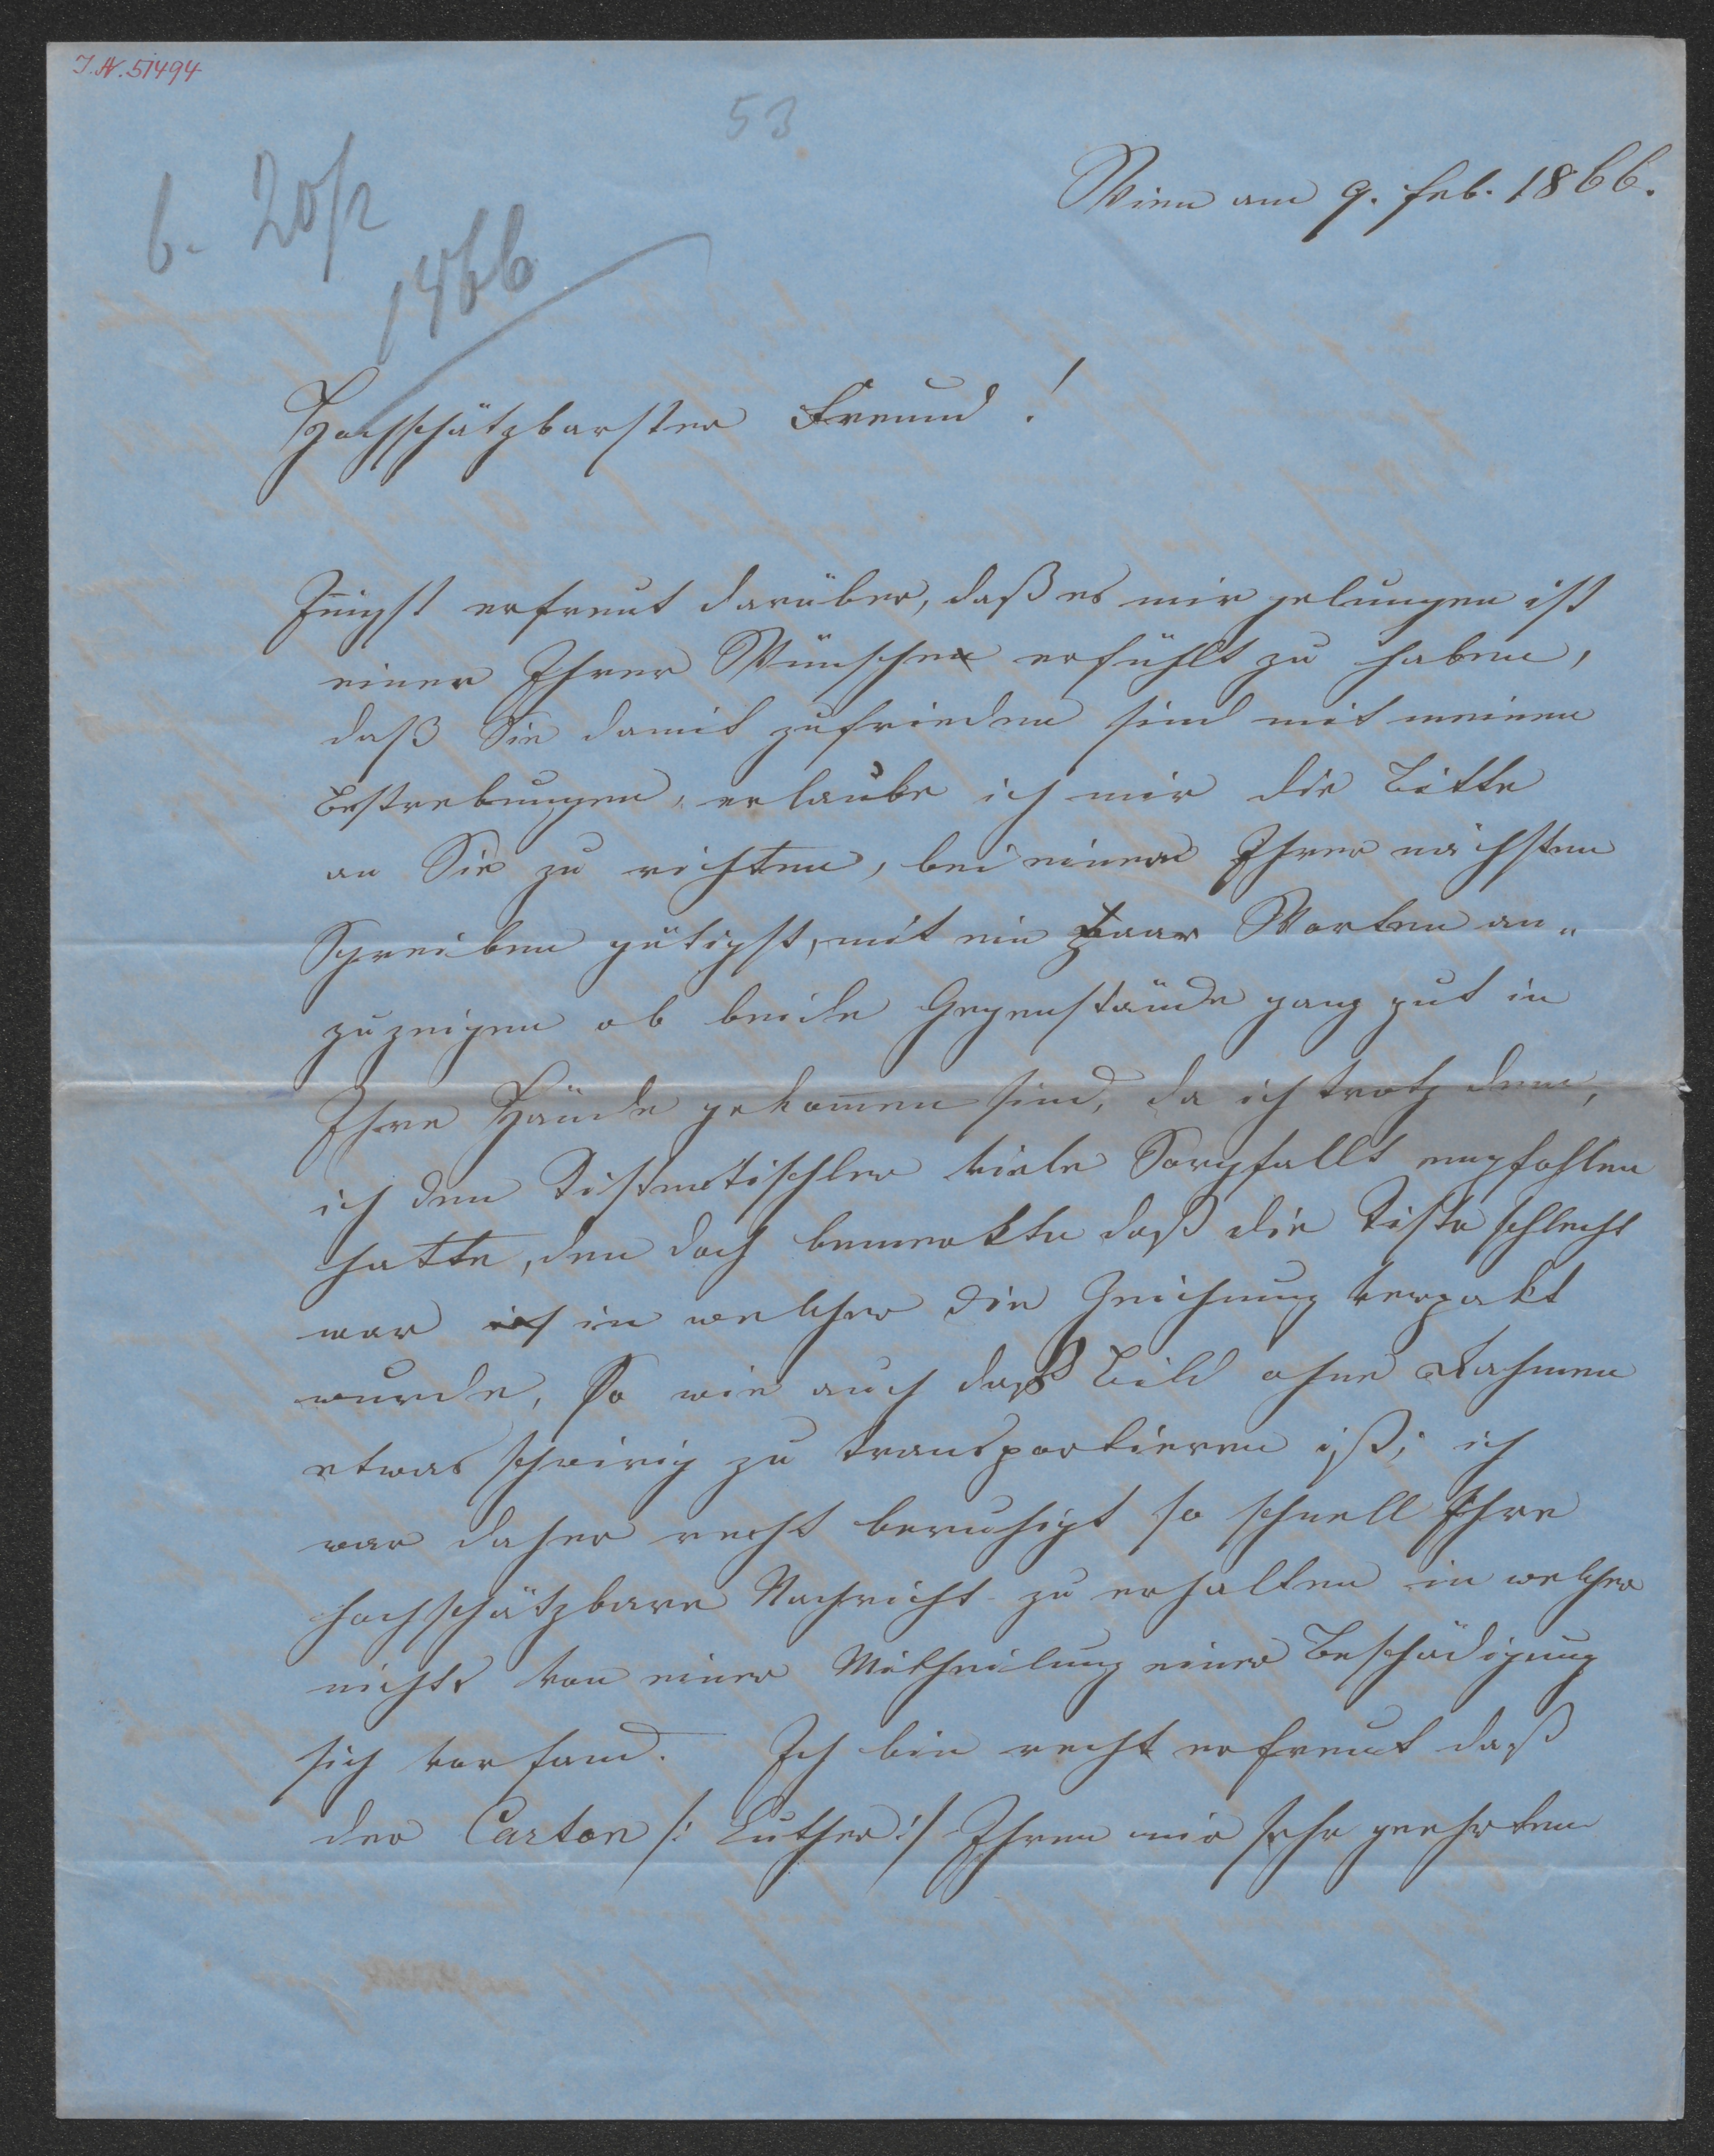 I.N. 51494
53
b. 20/2
1866
Wien am 9. Feb. 1866.
Hochschätzbarster Freund!
Innigst erfreut darüber, daß es mir gelungen ist
einer Ihrer Wünsche erfühlt zu haben,
daß Sie damit zufrieden sind mit meinen
Bestrebungen, erlaube ich mir die Bitte
an Sie zu richten, bei einem Ihrer nächsten
Schreiben gütigst, mit ein paar Worten an„
zuzeigen ob beide Gegenstände ganz gut in
Ihre Hände gekom̅en sind, da ich trotz dem,
ich dem Kistentischler viele Sorgfallt empfohlen
hatte, den doch bemerkte daß die Kiste schlecht
war in welcher die Zeichnung verpakt
wurde, So wie auch daß Bild ohne Rahmen
etwas schwirig zu transportieren ist; ich
war daher recht beruhigt so schnell Ihre
hochschätzbare Nachricht zu erhalten in welcher
nichts von einer Mittheilung einer Beschädigung
sich vorfand. Ich bin recht erfreut daß
der Carton /: Luther :/ Ihren mir sehr geehrten